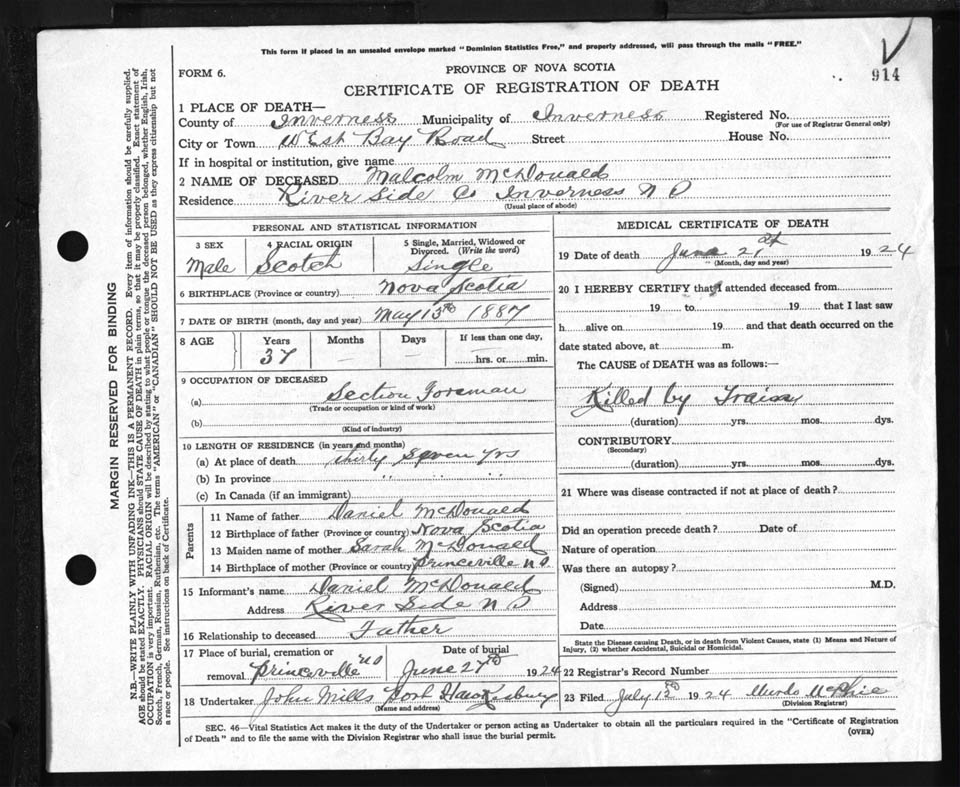 This form if placed in an unsealed envelope marked "Dominion Statistics Free," and properly addressed, will pass through the mails "FREE."
914
FORM 6.
PROVINCE OF NOVA SCOTIA
CERTIFICATE OF REGISTRATION OF DEATH
1 PLACE OF DEATH—
County of Inverness Municipality of Inverness Registered No.
(For use of Registrar General only)
City or Town West Bay Road Street House No.
If in hospital or institution, give name
2 NAME OF DECEASED Malcolm McDonald
Residence River Side Co Inverness N S
(Usual place of abode)
PERSONAL AND STATISTICAL INFORMATION
3 SEX 4 RACIAL ORIGIN 5 Single, Married, Widowed or Divorced. (Write the word)
Male Scotch Single
6 BIRTHPLACE (Province or country) Nova Scotia
7 DATE OF BIRTH (month, day and year) May 13th 1887
8 AGE Years Months Days If less than one day,
37 — — hrs. or min.
9 OCCUPATION OF DECEASED
(a) Section Foreman
(Trade or occupation or kind of work)
(b)
(Kind of industry)
10 LENGTH OF RESIDENCE (in years and months)
(a) At place of death thirty Seven yrs
(b) In province " "
(c) In Canada (if an immigrant)
Parents
11 Name of father Daniel McDonald
12 Birthplace of father (Province or country) Nova Scotia
13 Maiden name of mother Sarah McDonald
14 Birthplace of mother (Province or country) Princeville N.S.
15 Informant's name Daniel McDonald
Address River Side N S
16 Relationship to deceased Father
17 Place of burial, cremation or removal Princeville NS Date of burial June 27th 1924
18 Undertaker John Mills Port Hawksbury
(Name and address)
MEDICAL CERTIFICATE OF DEATH
19 Date of death June 1924
(Month, day and year)
20 I HEREBY CERTIFY that I attended deceased from
19 to 19 that I last saw
h alive on 19 and that death occurred on the
date stated above, at m.
The CAUSE of DEATH was as follows:—
Killed by Train
(duration) yrs. mos. dys.
CONTRIBUTORY
(Secondary)
(duration) yrs. mos. dys.
21 Where was disease contracted if not at place of death?
Did an operation precede death? Date of
Nature of operation
Was there an autopsy?
(Signed) M.D.
Address
Date
State the Disease causing Death, or in death from Violent Causes, state (1) Means and Nature of
Injury, (2) whether Accidental, Suicidal or Homicidal.
22 Registrar's Record Number
23 Filed July 12th 1924 Murdo McPhie
(Division Registrar)
SEC. 46—Vital Statistics Act makes it the duty of the Undertaker or person acting as Undertaker to obtain all the particulars required in the "Certificate of Registration
of Death" and to file the same with the Division Registrar who shall issue the burial permit.
(OVER)
MARGIN RESERVED FOR BINDING
N.B.—WRITE PLAINLY WITH UNFADING INK—THIS IS A PERMANENT RECORD. Every item of information should be carefully supplied.
AGE should be stated EXACTLY. PHYSICIANS should STATE CAUSE OF DEATH in plain terms, so that it may be properly classified. Exact statement of
OCCUPATION is very important. RACIAL ORIGIN will be described by stating to what people or tongue the deceased person belonged, whether English, Irish,
Scotch, French, German, Russian, Ruthenian, etc. The terms "AMERICAN" or "CANADIAN" SHOULD NOT BE USED as they express citizenship but not
a race or people. See instructions on back of Certificate.